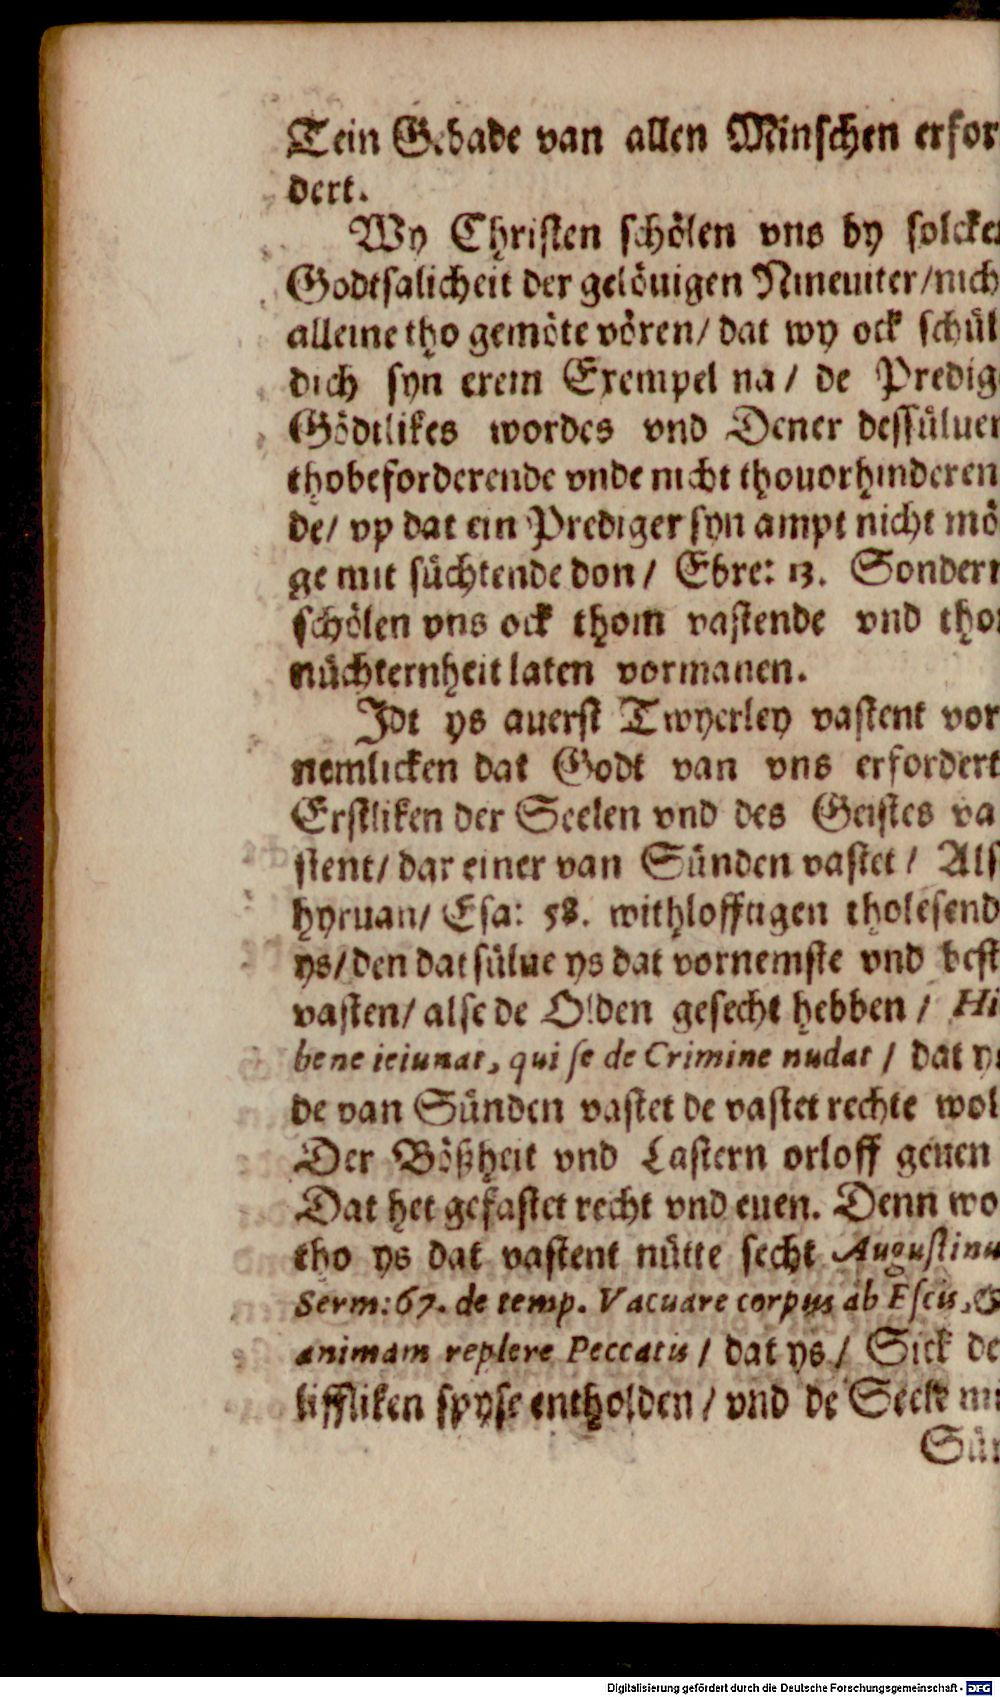 Tein Gebade van allen Minschen erfor
dert.
Wy Christen schölen vns by solcke
Godtsalicheit der gelöuigen Nineuiter/nich
alleine tho gemöte vören/ dat wy ock schül
dich syn erem Exempel na / de Predig
Gödtlikes wordes vnd Dener dessüluen
thobeforderende vnde nicht thouorhinderen
de/ vp dat ein Prediger syn ampt nicht mö
ge mit süchtende don / Ebre: 13. Sondern
schölen vns ock thom vastende vnd tho
nüchternheit laten vormanen.
Idt ys auerst Twyerley vastent vor
nemlicken dat Godt van vns erfordert
Erstliken der Seelen vnd des Geistes va
stent/ dar einer van Sünden vastet / Als
hyruan/ Esa: 58. withlofftigen tholesend
ys/ den dat sülue ys dat vornemste vnd best
vasten/ alse de Olden gesecht hebben / Hi
bene ieiunat, qui se de Crimine nudat / dat ys
de van Sünden vastet de vastet rechte wol
Der Bößheit vnd Lastern orloff geuen
Dat het gefastet recht vnd euen. Denn wo
tho ys dat vastent nütte secht Augustinu
Serm: 67. de temp. Vacuare corpus ab Escis, &
animam replere Peccatis / dat ys / Sick de
liffliken spyse entholden / vnd de Seele mi
Sün
Digitalisierung gefördert durch die Deutsche Forschungsgemeinschaft - DFG